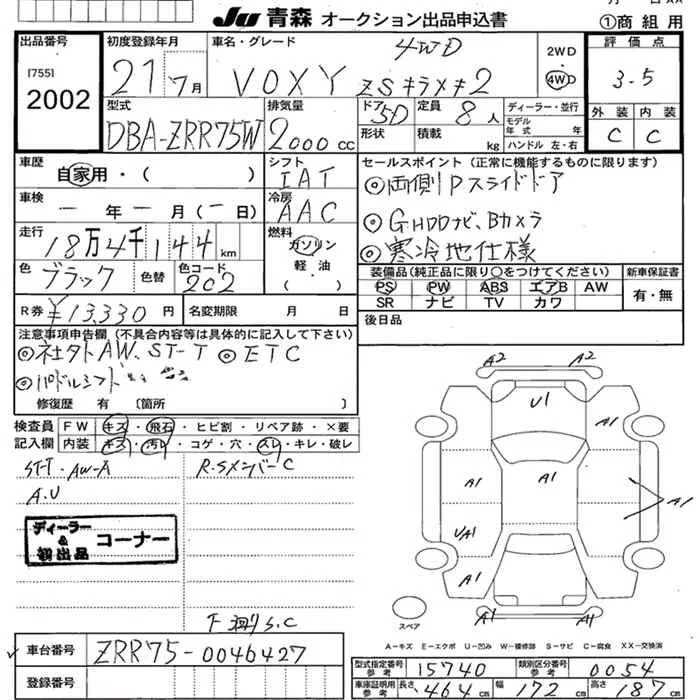 Ju 青森 オークション出品申込書
①商組用
出品番号
[755]
2002
初度登録年月
21年7月
車名・グレード
4WD
VOXY ZSキラメキ2
2WD
4WD
評価点
3.5
外装 内装
C C
型式
DBA-ZRR75W
排気量
2000 cc
ドア
5D
形状
定員
8人
積載
kg
ディーラー・並行
モデル年式 年
ハンドル 左・右
車歴
自家用・( )
シフト
IAT
冷房
AAC
車検
一年一月(一日)
走行
18万4千144km
燃料
ガソリン
軽油
・( )
色
ブラック
色替
色コード
202
セールスポイント(正常に機能するものに限ります)
◎両側Pスライドドア
◎GHDDナビ、Bカメラ
◎寒冷地仕様
装備品(純正品に限り○をつけてください)
PS PW ABS エアB AW
SR ナビ TV カワ
新車保証書
有・無
R券
¥13,330円
名変期限 月 日
後日品
注意事項申告欄(不具合内容等は具体的に記入して下さい)
◎社外AW、ST-T ◎ETC
◎パドルシフト
修復歴 有 〔箇所 〕
検査員記入欄
FW キズ・飛石・ヒビ割・リペア跡・×要
内装 キズ・汚レ・コゲ・穴・スレ・キレ・破レ
ST-T・AW-A
A.U
R.SメンバーC
ディーラー&初出品 コーナー
F廻りS.C
A2 A2
U1
A1
A1
A1
A1
U/A1
A1
A1 A1
スペア
A-キズ E-エクボ U-凹み W-補修跡 S-サビ C-腐食 XX-交換済
車台番号
ZRR75-0046427
登録番号
型式指定番号
参考
15740
類別区分番号
参考
0054
車庫証明用
参考
長さ 464cm
幅 172cm
高さ 187cm